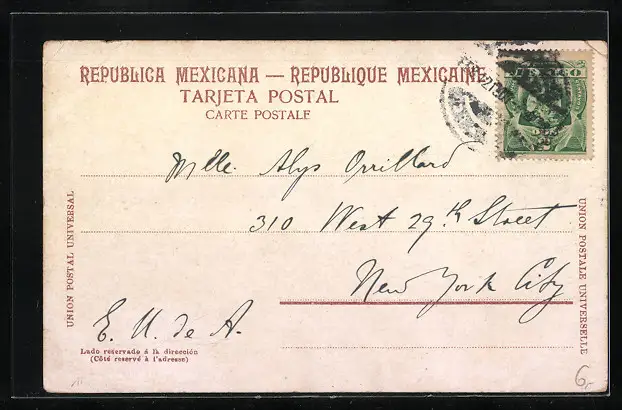 REPUBLICA MEXICANA — REPUBLIQUE MEXICAINE
TARJETA POSTAL
CARTE POSTALE
Mlle. Alys Orrillard
310 West 29th Street
New York City
E. U. de A.
Lado reservado á la dirección
(Côté reservé à l'adresse)
UNION POSTAL UNIVERSAL
UNION POSTALE UNIVERSELLE